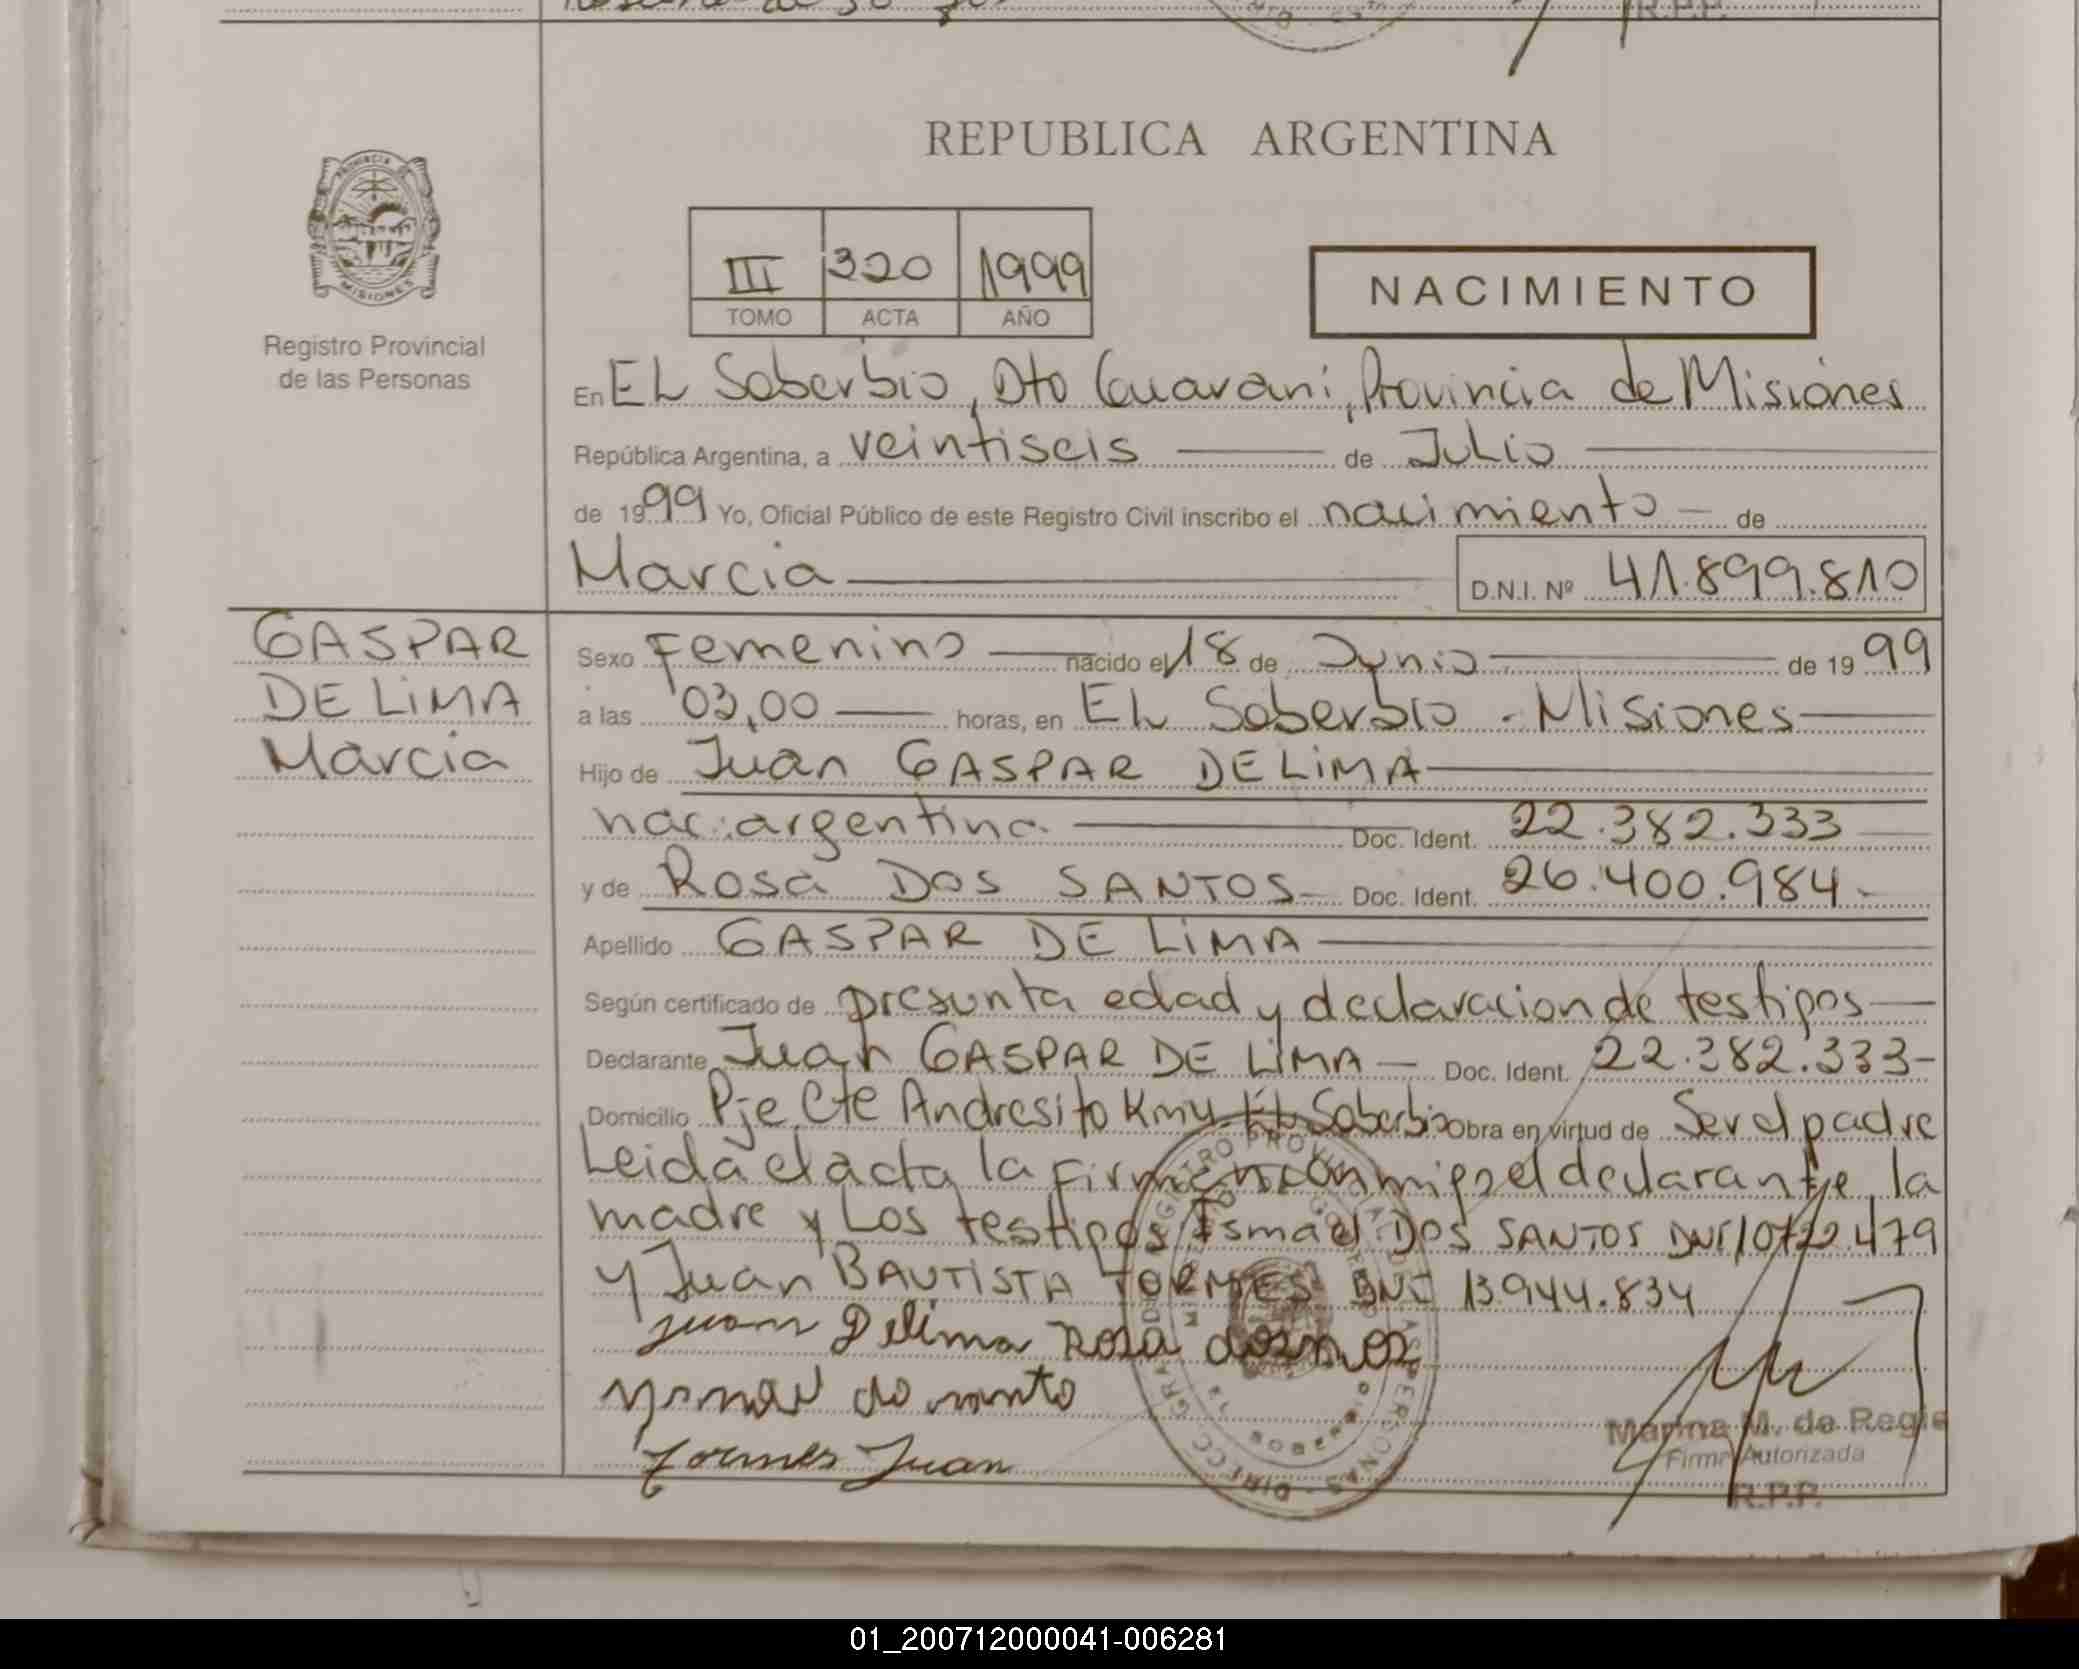 R.P.P.
REPUBLICA ARGENTINA
PROVINCIA DE
MISIONES
III 320 1999
TOMO ACTA AÑO
NACIMIENTO
Registro Provincial
de las Personas
En EL Soberbio, Dto Guarani, Provincia de Misiones
República Argentina, a veintiseis de Julio
de 1999 Yo, Oficial Público de este Registro Civil inscribo el nacimiento de
Marcia D.N.I. Nº 41.899.810
GASPAR
DE LiMA
Marcia
Sexo Femenino nacido el 18 de Junio de 1999
a las 03,00 horas, en EL Soberbio - Misiones
Hijo de Juan GASPAR DE LiMA
nac. argentina Doc. Ident. 22.382.333
y de Rosa DOS SANTOS Doc. Ident. 26.400.984.-
Apellido GASPAR DE LiMA
Según certificado de presunta edad y declaracion de testigos
Declarante Juan GASPAR DE LiMA - Doc. Ident. 22.382.333-
Domicilio Pje Cte Andresito Km4 EL Soberbio Obra en virtud de Ser el padre
Leida el acta la firman conmigo el declarante, la
madre y Los testigos Ismael DOS SANTOS DNI 10722.479
y Juan BAUTiSTA TORMES DNI 13944.834
Juan Delima Rosa
Tormes Juan
Marina M. de Regie
Firma Autorizada
R.P.P.
01_200712000041-006281